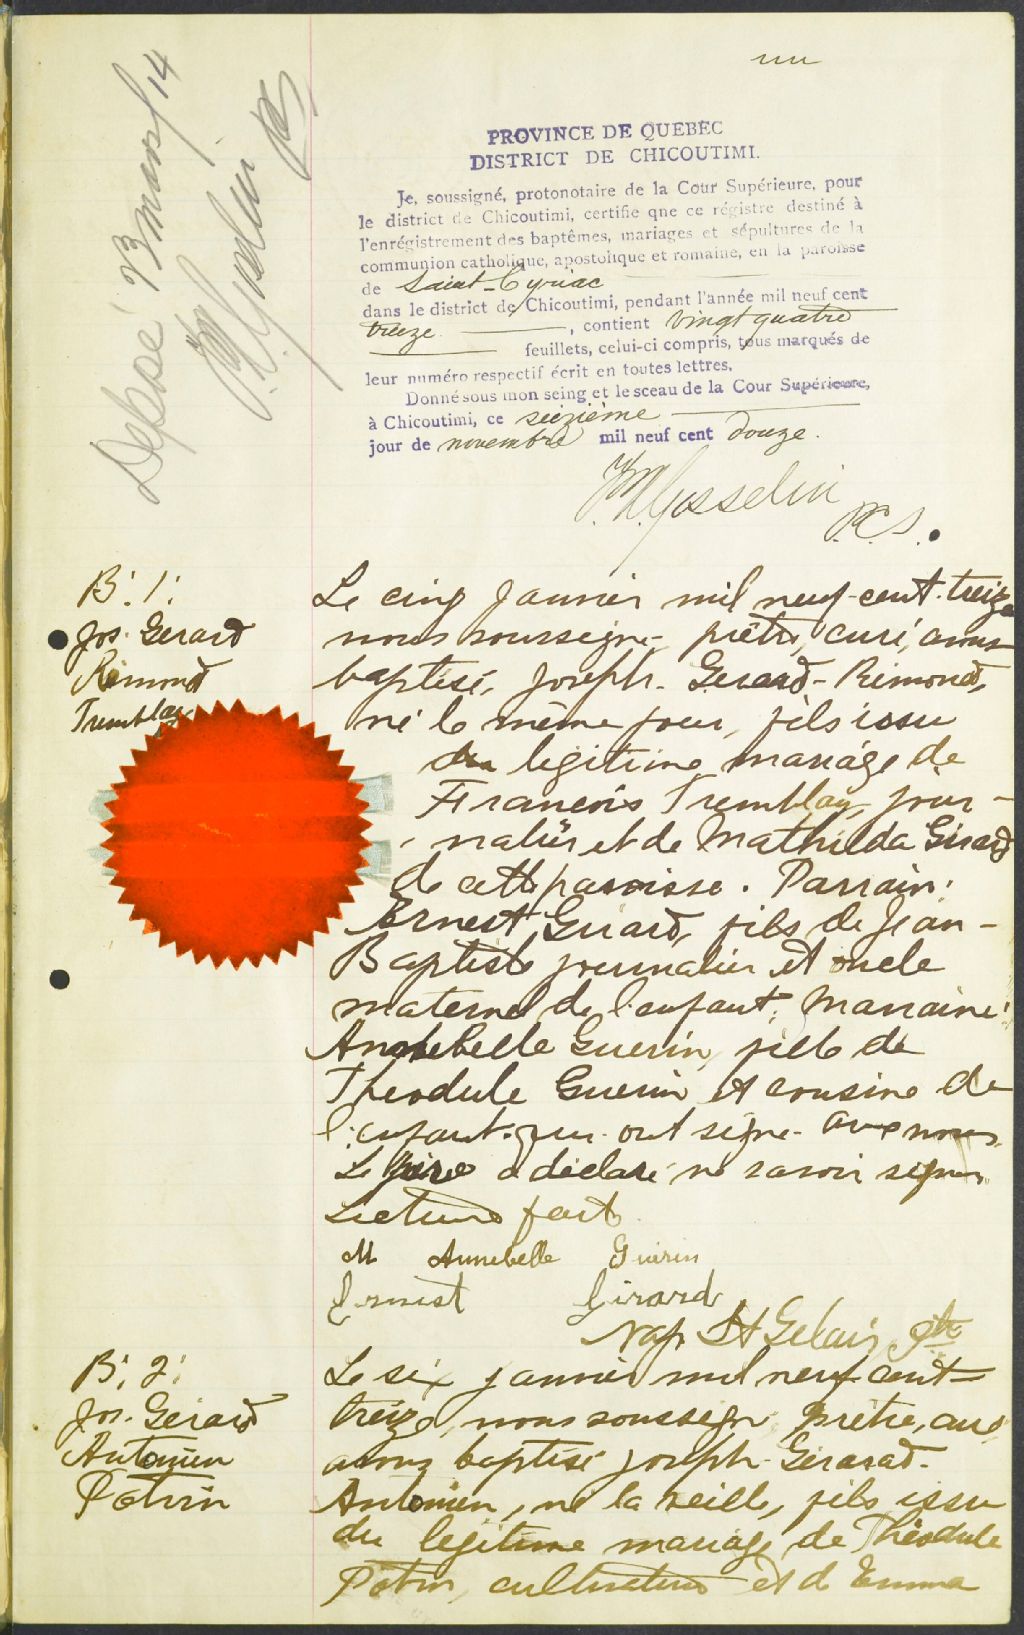 un
Déposé 13 mars/14
F. X. Gosselin
PCS
PROVINCE DE QUEBEC
DISTRICT DE CHICOUTIMI.
Je, soussigné, protonotaire de la Cour Supérieure, pour
le district de Chicoutimi, certifie qne ce régistre destiné à
l'enrégistrement des baptêmes, mariages et sépultures de la
communion catholique, apostolique et romaine, en la paroisse
de Saint-Cyriac
dans le district de Chicoutimi, pendant l'année mil neuf cent
treize, contient vingt quatre
feuillets, celui-ci compris, tous marqués de
leur numéro respectif écrit en toutes lettres.
Donné sous mon seing et le sceau de la Cour Supérieure,
à Chicoutimi, ce seizième
jour de novembre mil neuf cent douze.
Gosselin
P.C.S.
B. 1.
Jos. Gerard
Rémond
Tremblay
Le cinq Janvier mil neuf-cent-treize
nous soussigné prêtre, curé, avons
baptisé, Joseph-Gerard-Rémond,
né le même jour, fils issu
du légitime mariage de
Francois Tremblay, jour-
nalier et de Mathilda Girard
de cette paroisse. Parrain:
Ernest Girard, fils de Jean-
Baptiste journalier et oncle
maternel de l'enfant; Marraine:
Annebelle Guerin, fille de
Theodule Guerin et cousine de
l'enfant qui ont signé avec nous.
Le père a déclaré ne savoir signer
Lecture faite
M Annebelle Guérin
Ernest Girard
Nap St Gelais, ptre
B. 2.
Jos. Gerard
Antonien
Potvin
Le six janvier mil neuf cent
treize, nous soussigné, Prêtre, curé
avons baptisé Joseph-Gerard-
Antonien, né la veille, fils issu
du légitime mariage de Théodule
Potvin, cultivateur et d'Emma